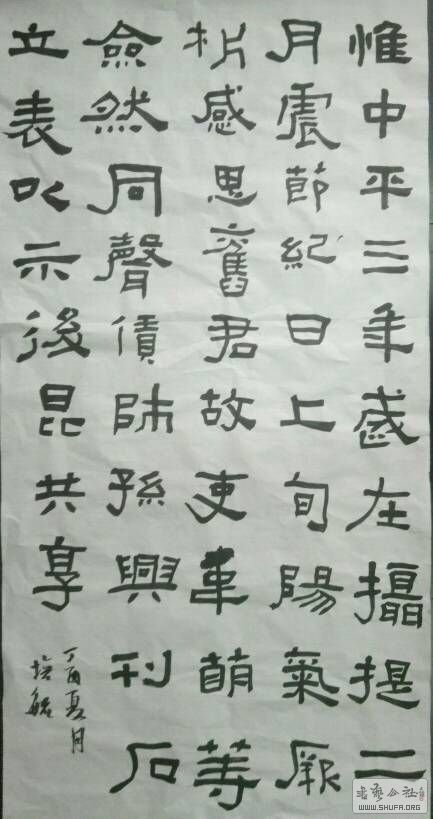 惟中平三年歲在攝提二
月震節紀日上旬陽氣厥
析感思舊君故吏韋萌等
僉然同聲賃師孫興刊石
立表以示後昆共享
丁酉夏月
書藝公社
WWW.SHUFA.ORG